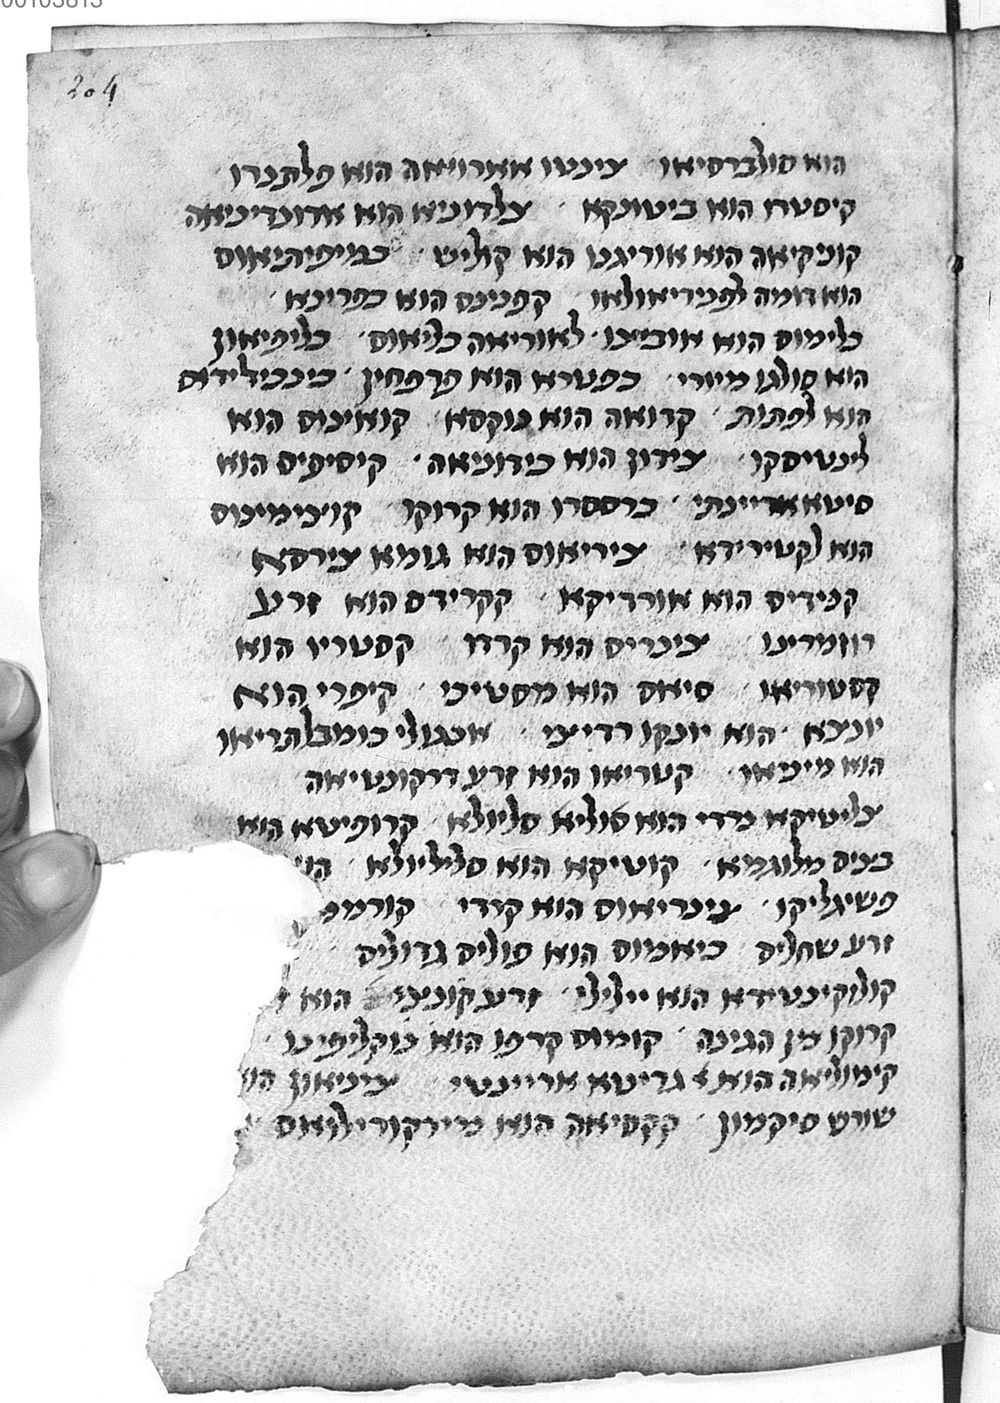 00103813
204
הוא סולברסיאו צינטו אארויאה הוא פלתברו
קיסטרו הוא ביטונקא צלדוניא הוא ארונדיניאה
קוניקיאה הוא אוריגנו הוא קוליש כמיפיתיאוס
הוא דומה לפניריאולאו קפנינס הוא כפרינא
כלימוס הוא אוביצו לאוריאה כליאוס כליפיאון
הוא סולגו מיורי כפטרא הוא פרפחין
הוא לפתות קרואה הוא נוקסא קואינוס הוא
לינטיסקו צידון הוא כידוניאה קיסיפיס הוא
סיטא ארייינתי כרססרו הוא קרוקו קוצימינוס
הוא לקטירידא ציריאוס הוא גומא צירסא
קנידיס הוא אורדיקא קקרידס הוא זרע
רוזמרינו צינריס הוא קרדו קסטריו הוא
קסטוריאו סיאס הוא מסטיכי קיפרי הוא
יונצא הוא יונקו רדייצי אנגולי
הוא מיניאו קטריאו הוא זרע דרקונטיאה
צליטיקא נרדי הוא סוליא סליולא קרופיטא הוא
בניס מלוגמא קוטיקא הוא סליליולא
פשיגליקו צינריאוס הוא קרדי
זרע שחליס כיאמוס הוא פוליס גדוליס
קולוקינטידא הוא יילילי זרע קונצי הוא
קרוקו מן הגינה קומוס קרפו הוא נוקליפינו
קימוליאה הוא גריטא אריינטי ציניאון
שורש סיקמון קקסיאה הוא מירקוריליאוס